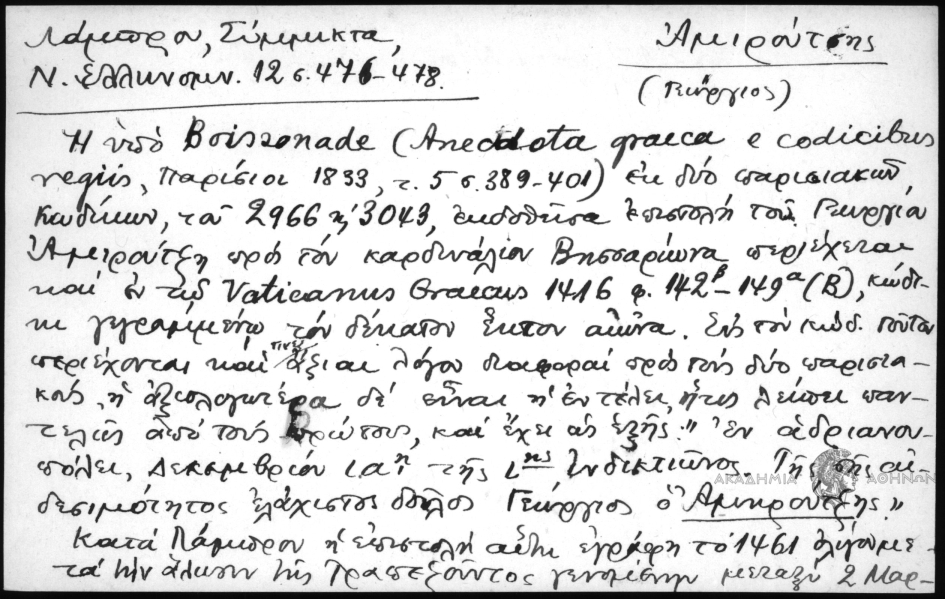 Λάμπρου, Σύμμικτα,
Ν. Ἑλληνομν. 12 σ. 476-478.
Ἀμιρούτσης
(Γεώργιος)
Ἡ ὑπό Boissonade (Anecdota graeca e codicibus
regiis, Παρίσιοι 1833, τ. 5 σ. 389-401) ἐκ δύο παρισιακῶν
κωδίκων, τοῦ 2966 κ' 3043, ἐκδοθεῖσα ἐπιστολή τοῦ Γεωργίου
Ἀμιρούτζη πρός τόν καρδινάλιον Βησσαρίωνα περιέχεται
καί ἐν τῷ Vaticanus Graecus 1416 φ. 142β-149α (Β), κώδι-
κι γεγραμμένῳ τόν δέκατον ἕκτον αἰῶνα. Εἰς τόν κώδ. τοῦτον
περιέχονται καί τινες ἄξιαι λόγου διαφοραί πρός τούς δύο παρισια-
κούς, ἡ ἀξιολογωτέρα δέ εἶναι ἡ ἐν τέλει, ἥτις λείπει παν-
τελῶς ἀπό τούς πρώτους, καί ἔχει ὡς ἑξῆς: " ἐν ἀδριανου-
πόλει, Δεκεμβρίου ιαῃ τῆς ι ης Ἰνδικτιῶνος. Τῆς σῆς αἰ-
δεσιμότητος ἐλάχιστος δοῦλος Γεώργιος ὁ Ἀμηρούτζης."
Κατά Λάμπρον ἡ ἐπιστολή αὕτη ἐγράφη τό 1461 ὀλίγον με-
τά τήν ἅλωσιν τῆς Τραπεζοῦντος γενομένην μεταξύ 2 Μαρ-
ΑΚΑΔΗΜΙΑ ΑΘΗΝΩΝ